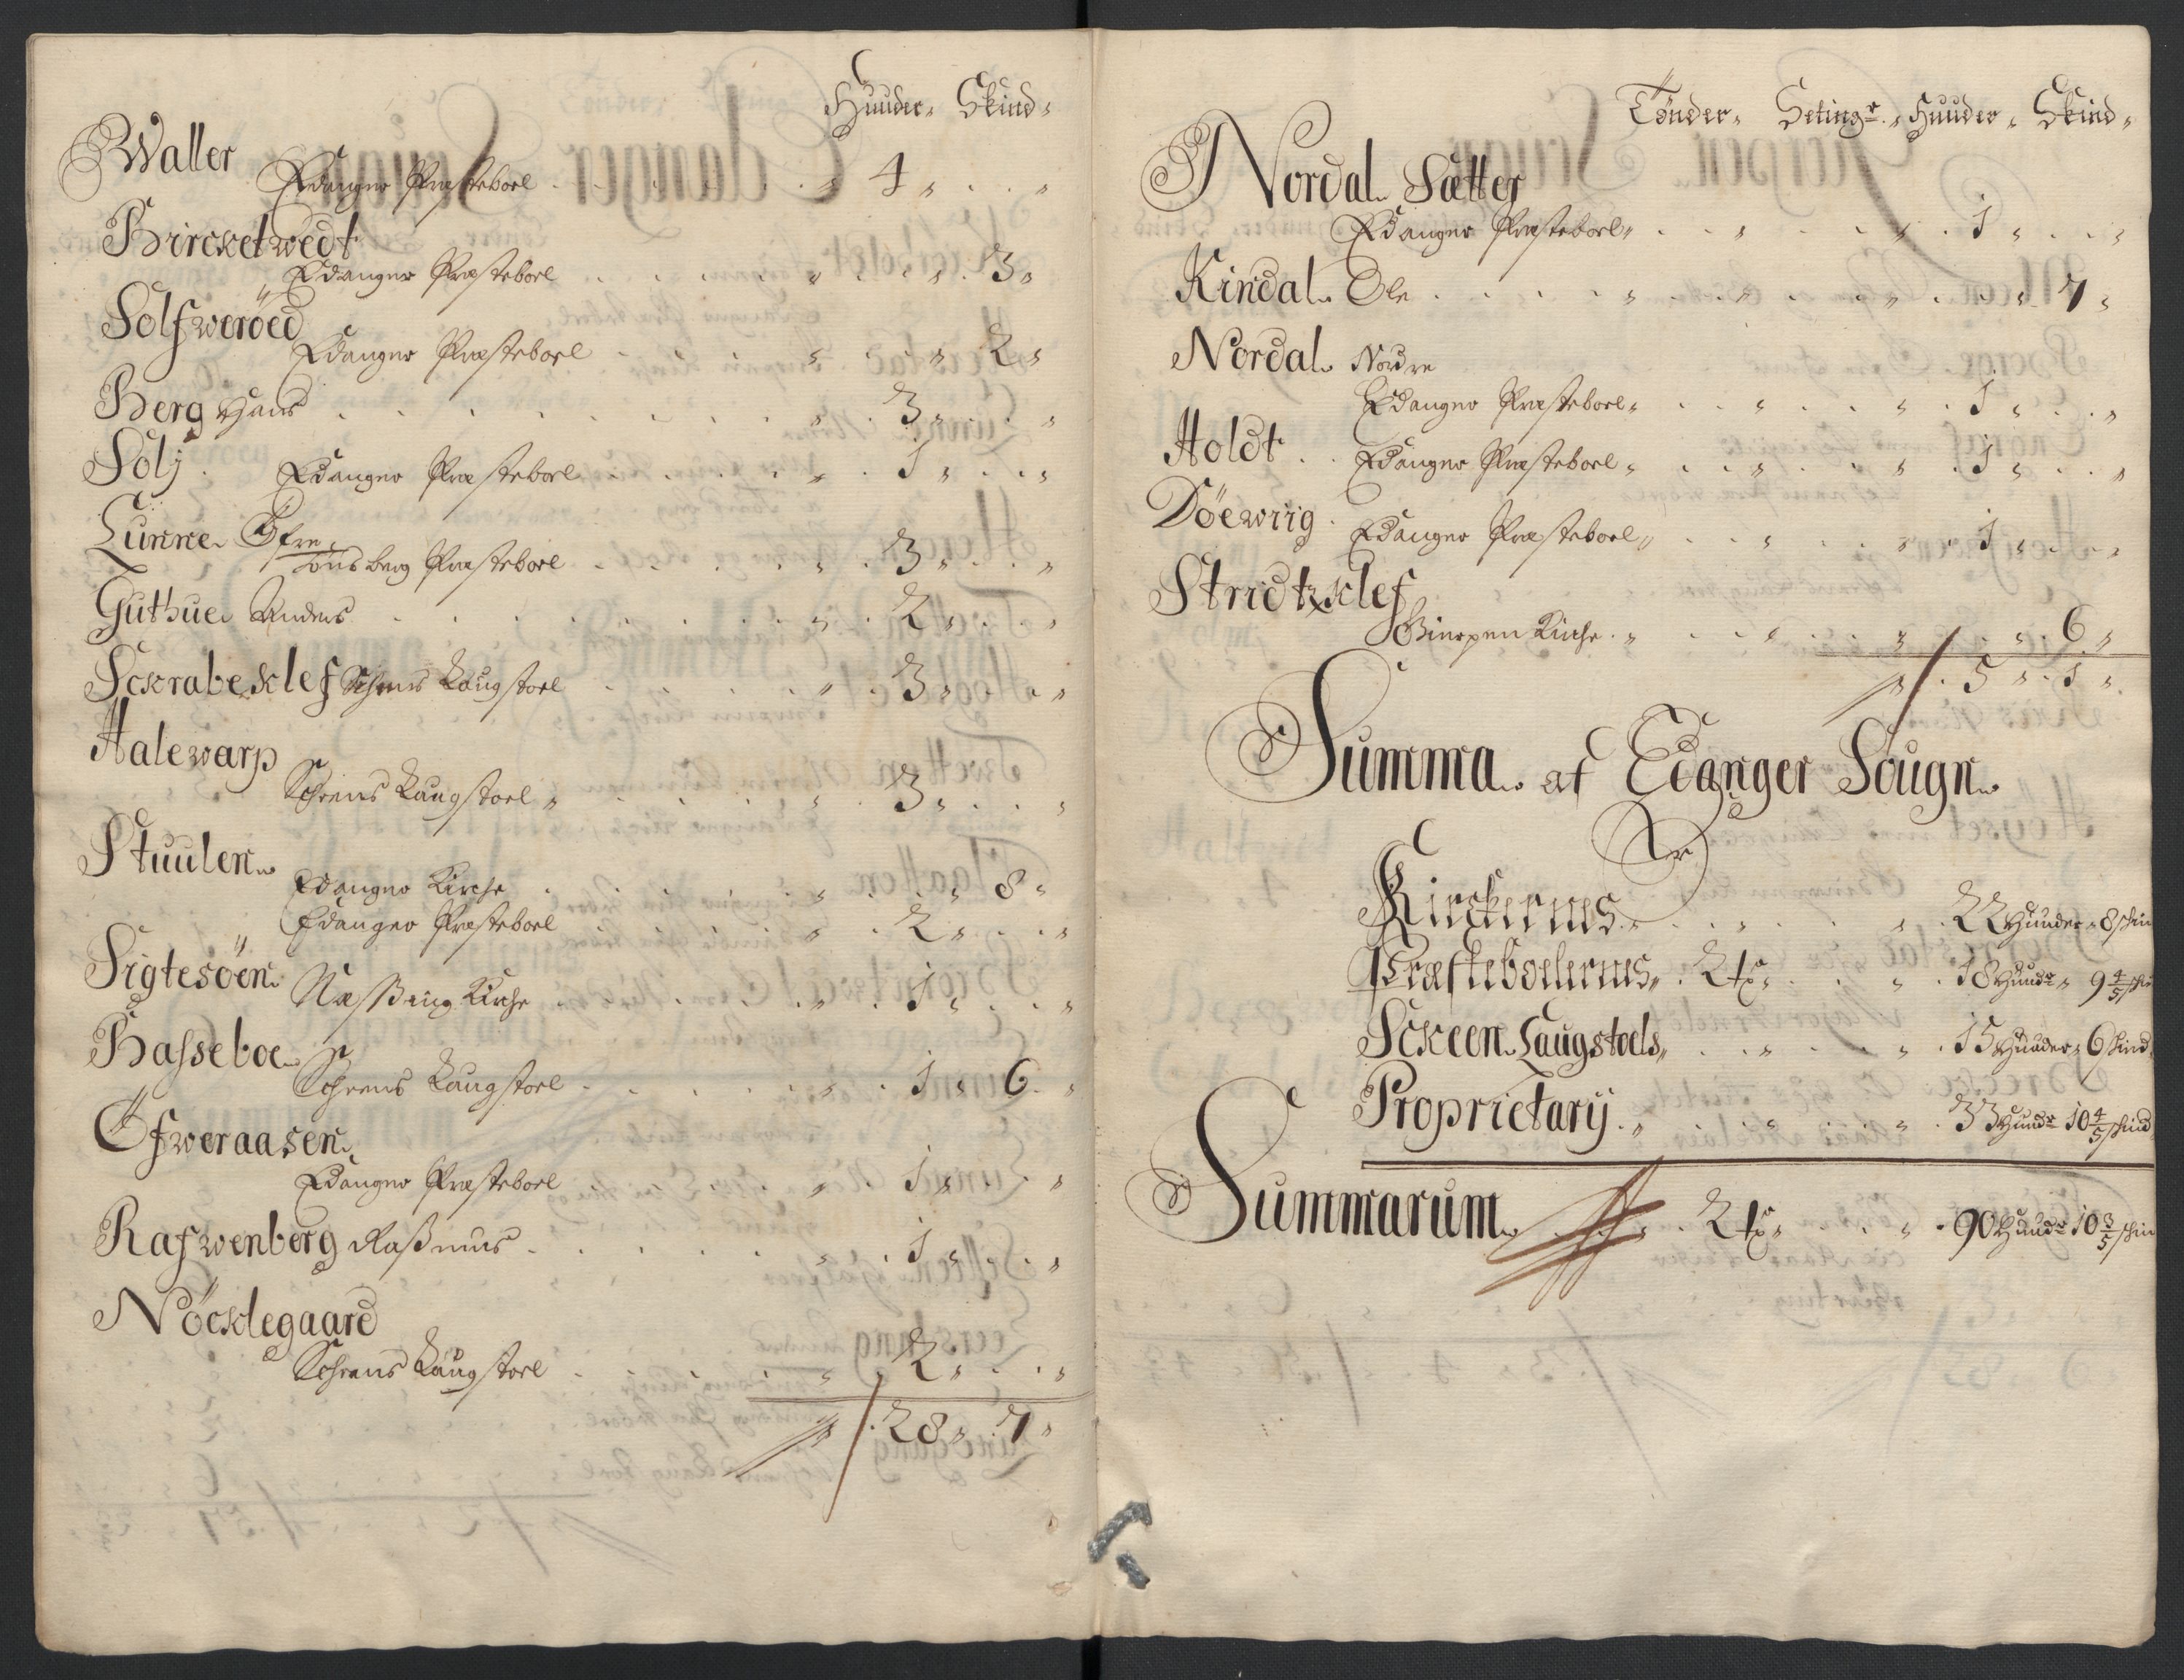 Huuder Skind
Waller
Edanger Præsteboel 4
Bircketwedt
Edanger Præsteboel 3
Solfweröed
Edanger Præsteboel 2
Berg Hans 3
Solj Edanger Præsteboel 1
Lunne Öfre
Tønsberg Præsteboel 3
Guthue Anders 2
Sckrabeklef Schens Laugstoel 3
Halewarp
Schens Laugstoel 3
Stuulen
Edanger Kirche 8
Edanger Præsteboel 2
Sigtesöen
Kirche 1
Basseboe
Schens Laugstoel 1 6
Öfweraasen
Edanger Præsteboel 1
Rafwenberg Rasmus 1
Nöcklegaard
Schens Laugstoel 2
28 7
Tönder Setingr Huuder Skind
Nordal Sætter
Edanger Præsteboel 1
Kindal Ole 7
Nordal Nordre
Edanger Præsteboel 1
Holdt Edanger Præsteboel 1
Döewiig Edanger Præsteboel 1
Stridtzklef
Gierpen Kirche 6
5 1
Summa af Edanger Sougn
Er
Kirckernes 22 Huuder 8 skin
Præsteboelernes 2 tr 18 Hundr 9 4/5 ski
Sckeen Laugstoels 15 Huuder 6 skind
Proprietarij 33 Hundr 10 4/5 skind
Summarum 2 tr 90 Hundr 10 3/5 skin